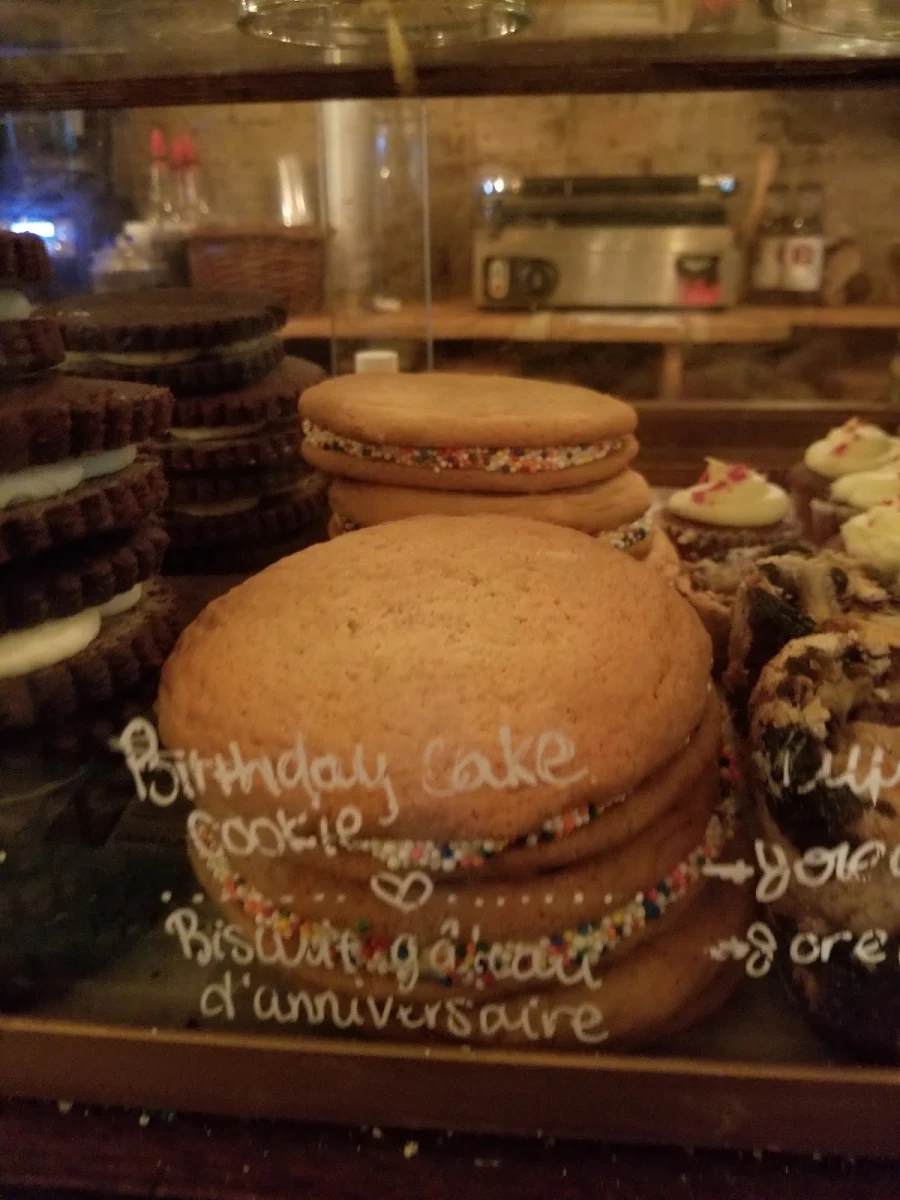 Birthday Cake
Cookie
Biscuit gâteau
d'anniversaire